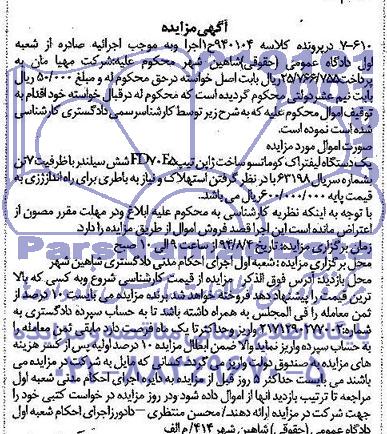 آگهی مزایده
۷-۶۱۰ درپرونده کلاسه ۹۴۰۱۰۴ ح۱اجرا وبه موجب اجرائیه صادره از شعبه
اول دادگاه عمومی (حقوقی)شاهین شهر محکوم علیه:شرکت مهیا مان به
پرداخت ۲۵/۷۶۶/۷۵۵ریال بابت اصل خواسته درحق محکوم له و مبلغ ۵۰/۰۰۰ ریال
بابت نیم عشردولتی محکوم گردیده است که محکوم له درقبال خواسته خود اقدام به
توقیف اموال محکوم علیه که به شرح زیر توسط کارشناسرسمی دادگستری کارشناسی
شده است نموده است.
صورت اموال مورد مزایده
یک دستگاه لیفتراک کوماتسو ساخت ژاپن تیپ FD۷۰E۵ شش سیلندر باظرفیت ۷تن
بشماره سریال ۶۳۱۹۸ با در نظر گرفتن استهلاک و نیاز به باطری برای راه اندازی به
قیمت پایه ۶۰۰/۰۰۰/۰۰۰ریال می باشد.
با توجه به اینکه نظریه کارشناسی به محکوم علیه ابلاغ ودر مهلت مقرر مصون از
اعتراض مانده است این اجرا قصد فروش اموال از طریق مزایده را دارد
زمان برگزاری مزایده: تاریخ ۹۴/۸/۴ از ساعت ۹ الی ۱۰ صبح
محل برگزاری مزایده : شعبه اول اجرای احکام مدنی دادگستری شاهین شهر
محل بازدید: آدرس فوق الذکر مزایده از قیمت کارشناسی شروع وبه کسی که بالا
ترین قیمت را پیشنهاد دهد فروخته خواهد شد برنده مزایده می بایست ۱۰ درصد از
ثمن معامله را فی المجلس به همراه داشته باشد تا به حساب سپرده دادگستری به
شماره: واریز وحداکثر تا یک ماه فرصت دارد مابقی ثمن معامله را
به حساب سپرده واریز نماید والا ضمن ابطال مزایده ۱۰ درصد اولیه پس از کسر هزینه
های مزایده به صندوق دولت واریز می گردد. کسانی که مایل به شرکت در مزایده می
باشند می بایست حداکثر روز قبل از مزایده به دایره اجرای احکام مدنی شعبه اول
مراجعه تا ترتیب بازدید آنها از اموال داده شود ودر روز مزایده درخواست کتبی خود را
جهت شرکت در مزایده ارائه دهند/ محسن منتظری –دادورزاجرای احکام شعبه اول
دادگاه عمومی (حقوقی) شاهین شهر ۴۱۴/م الف
۰۲۱-۸۸۳۴۹۶۷۰-۵